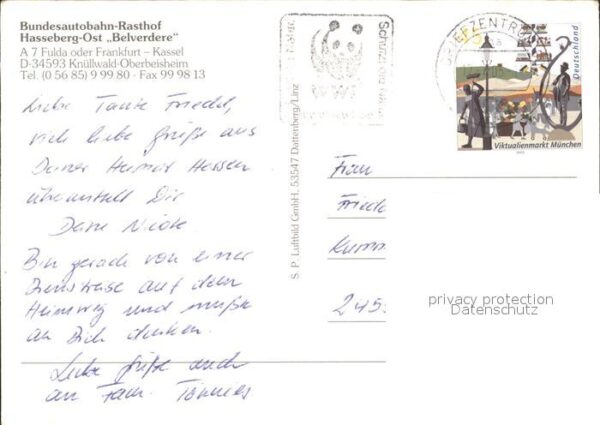 Bundesautobahn-Rasthof
Hasseberg-Ost „Belverdere"
A 7 Fulda oder Frankfurt – Kassel
D-34593 Knüllwald-Oberbeisheim
Tel. (0 56 85) 9 99 80 · Fax 99 98 13
Liebe Tante Friedel,
viele liebe Grüße aus
Deiner Heimat Hessen
übermittelt Dir
Deine Nicole.
Bin gerade von einer
Dienstreise auf dem
Heimweg und mußte
an Dich denken.
Liebe Grüße auch
an Fam. Tönnies
S. P. Luftbild GmbH, 53547 Dattenberg/Linz
WWF
Schützt die
BRIEFZENTRUM
Deutschland
Viktualienmarkt München
Frau
Friede
Kumm
245
privacy protection
Datenschutz